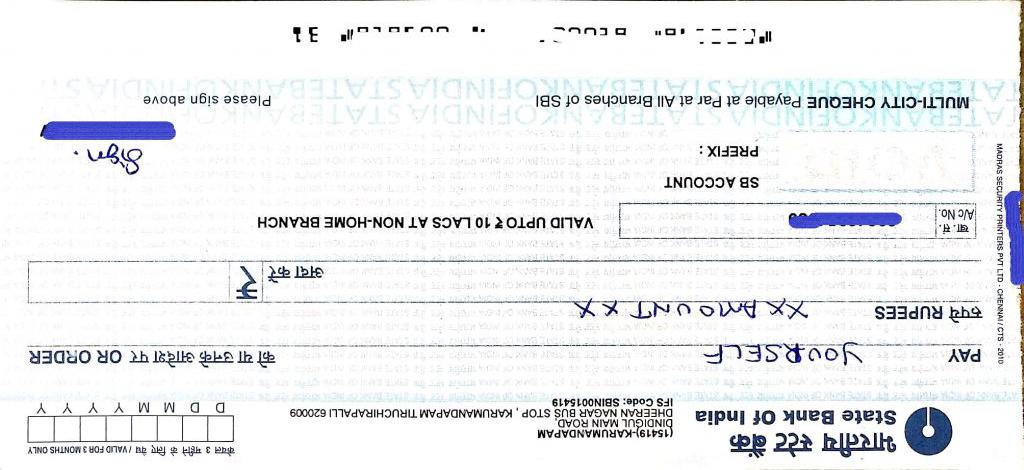 भारतीय स्टेट बैंक
State Bank Of India
(15419)-KARUMANDAPAM
DINDIGUL MAIN ROAD,
DHEERAN NAGAR BUS STOP, KARUMANDAPAM TIRUCHIRAPALLI 620009
IFS Code: SBIN0015419
केवल 3 महीने के लिए वैध / VALID FOR 3 MONTHS ONLY
D D M M Y Y Y Y
PAY YOURSELF को या उनके आदेश पर OR ORDER
रुपये RUPEES XX AMOUNT XX
अदा करें ₹
खा. सं.
A/c No.
VALID UPTO ₹ 10 LACS AT NON-HOME BRANCH
SB ACCOUNT
PREFIX :
Sign.
MULTI-CITY CHEQUE Payable at Par at All Branches of SBI
Please sign above
STATEBANKOFINDIASTATEBANKOFINDIA
MADRAS SECURITY PRINTERS PVT LTD - CHENNAI / CTS - 2010
31